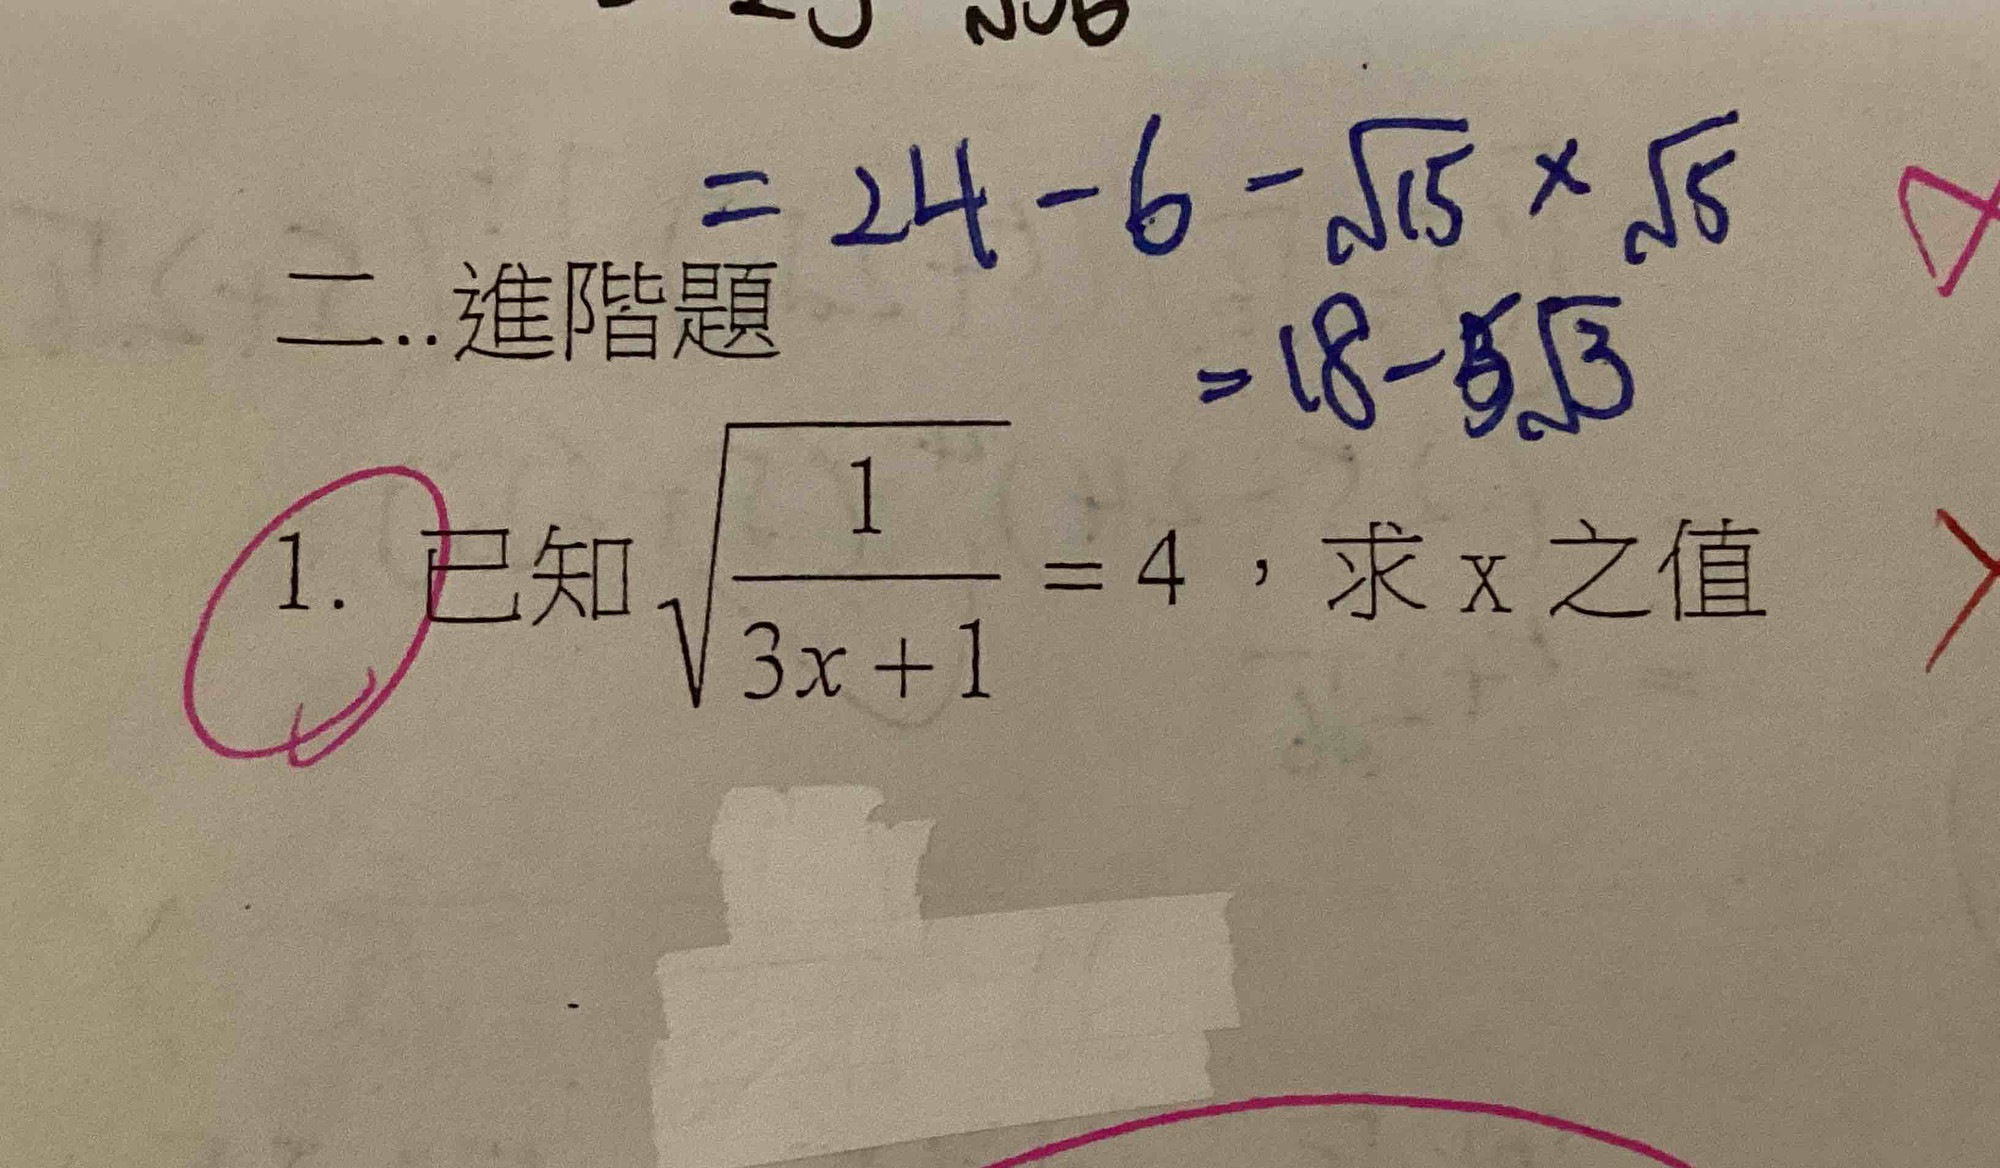 = 24 - 6 - √15 × √5
二..進階題
= 18 - 5√3
1. 已知 √(1/(3x+1)) = 4，求 x 之值